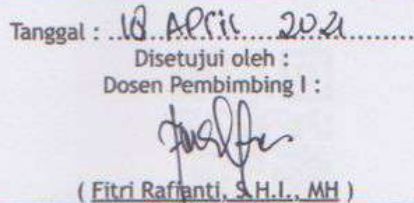 Tanggal : 18 April 2021
Disetujui oleh :
Dosen Pembimbing I :
( Fitri Rafianti, S.H.I., MH )